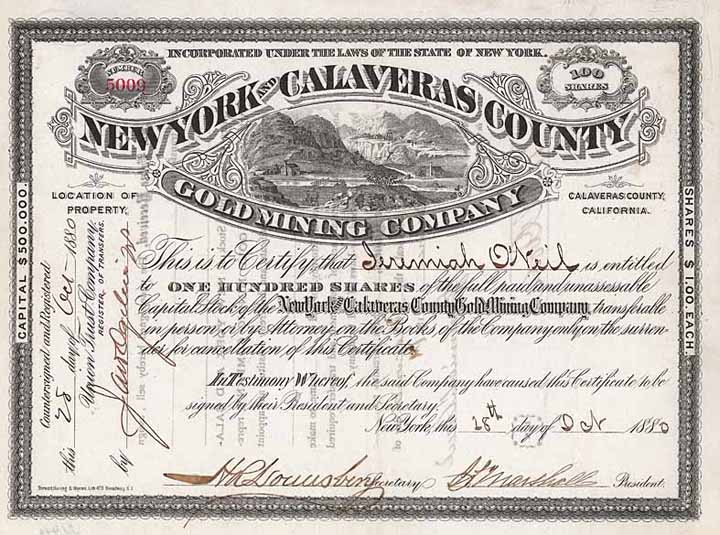 INCORPORATED UNDER THE LAWS OF THE STATE OF NEW YORK.
NUMBER
5009
100
SHARES
NEW YORK AND CALAVERAS COUNTY
GOLD MINING COMPANY
LOCATION OF
PROPERTY,
CALAVERAS COUNTY,
CALIFORNIA.
CAPITAL $500,000.
SHARES $1.00, EACH.
Countersigned and Registered
this 28 day of Oct 1880
Union Trust Company,
REGISTER, OF TRANSFERS.
by
This is to Certify that Jeremiah O'Neil is entitled
to ONE HUNDRED SHARES of the full paid and unassessable
Capital Stock of the New York and Calaveras County Gold Mining Company, transferable
in person or by Attorney on the Books of the Company only on the surren-
der for cancellation of this Certificate
In Testimony Whereof, the said Company have caused this Certificate to be
signed by their President and Secretary.
New York, this 28th day of Oct 1880
Secretary
Marshall President.